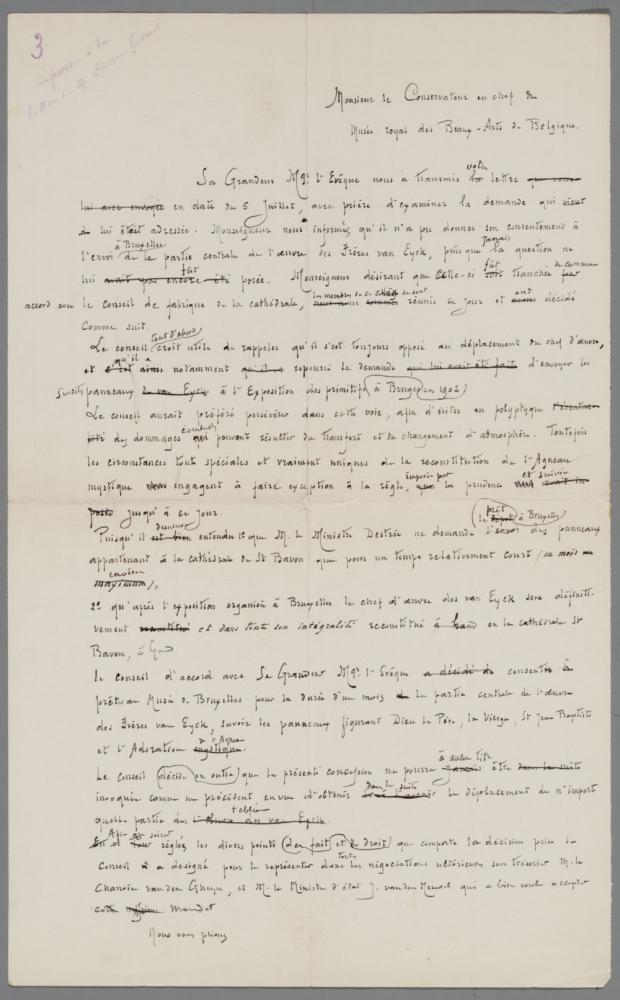 3
Réponse à la
lettre de M.
Monsieur le Conservateur en chef du
Musée royal des Beaux-Arts de Belgique.
votre
Sa Grandeur Mgr l'Evêque nous a transmis la lettre que vous
lui avez envoyée en date du 5 Juillet, avec prière d'examiner la demande qui vient
de lui était adressée. Monseigneur nous informe qu'il n'a pu donner son consentement à
à Bruxelles jamais
l'envoi de la partie centrale de l'œuvre des Frères van Eyck, puisque la question ne
fût fût de commun
lui avait pas encore été posée. Monseigneur désirant que celle-ci soit tranchée par
les membres de ce se sont
accord avec le Conseil de fabrique de la cathédrale, nous nous sommes réunis ce jour et avons ont décidé
comme suit.
tout d'abord
Le conseil croit utile de rappeler qu'il s'est toujours opposé au déplacement du chef d'œuvre,
qu'il a
et c'est ainsi notamment qu'il a repoussé la demande qui lui avait été faite d'envoyer les
susdits panneaux de van Eyck à l'Exposition des primitifs à Bruges en 1902
Le conseil aurait préféré persévérer dans cette voie, afin d'éviter au polyptyque
éventuels
des dommages qui pouvant résulter du transfert et du changement d'atmosphère. Toutefois
les circonstances tout spéciales et vraiment uniques de la reconstitution de l'Agneau
imposée par et suivie
mystique nous engagent à faire exception à la règle, que la prudence avait im
posée jusqu'à ce jour.
demeure le prêt à Bruxelles
Puisqu'il est bien entendu 1° que M. le Ministre Destrée ne demande l'envoi des panneaux
appartenant à la cathédrale de St Bavon que pour un temps relativement court (un mois au
environ
maximum),
2° qu'après l'exposition organisée à Bruxelles le chef d'œuvre des van Eyck sera définiti-
vement et dans toute son intégralité reconstitué à Gand en la cathédrale St
Bavon, à Gand
le conseil d'accord avec Sa Grandeur Mgr l'Evêque a décidé de consent à
prêter au Musée de Bruxelles pour la durée d'un mois la partie centrale de l'œuvre
des Frères van Eyck, savoir les panneaux figurant Dieu le Père, la Vierge, St Jean Baptiste
de l'Agneau
et l'Adoration mystique.
à aucun titre
Le Conseil décide en outre que la présente concession ne pourra jamais être dans la suite
dans la suite
invoquée comme un précédent en vue d'obtenir le déplacement de n'import
quelle partie du l'œuvre des van Eyck.
Afin soient
réglés les divers points de fait et de droit que comporte la décision prise le
toutes
Conseil a désigné pour le représenter dans les négociations ultérieures son trésorier M. le
Chanoine vanden Gheyn, et M. le Ministre d'état J. vanden Heuvel qui a bien voulu accepter
cette mandat
Nous vous prions